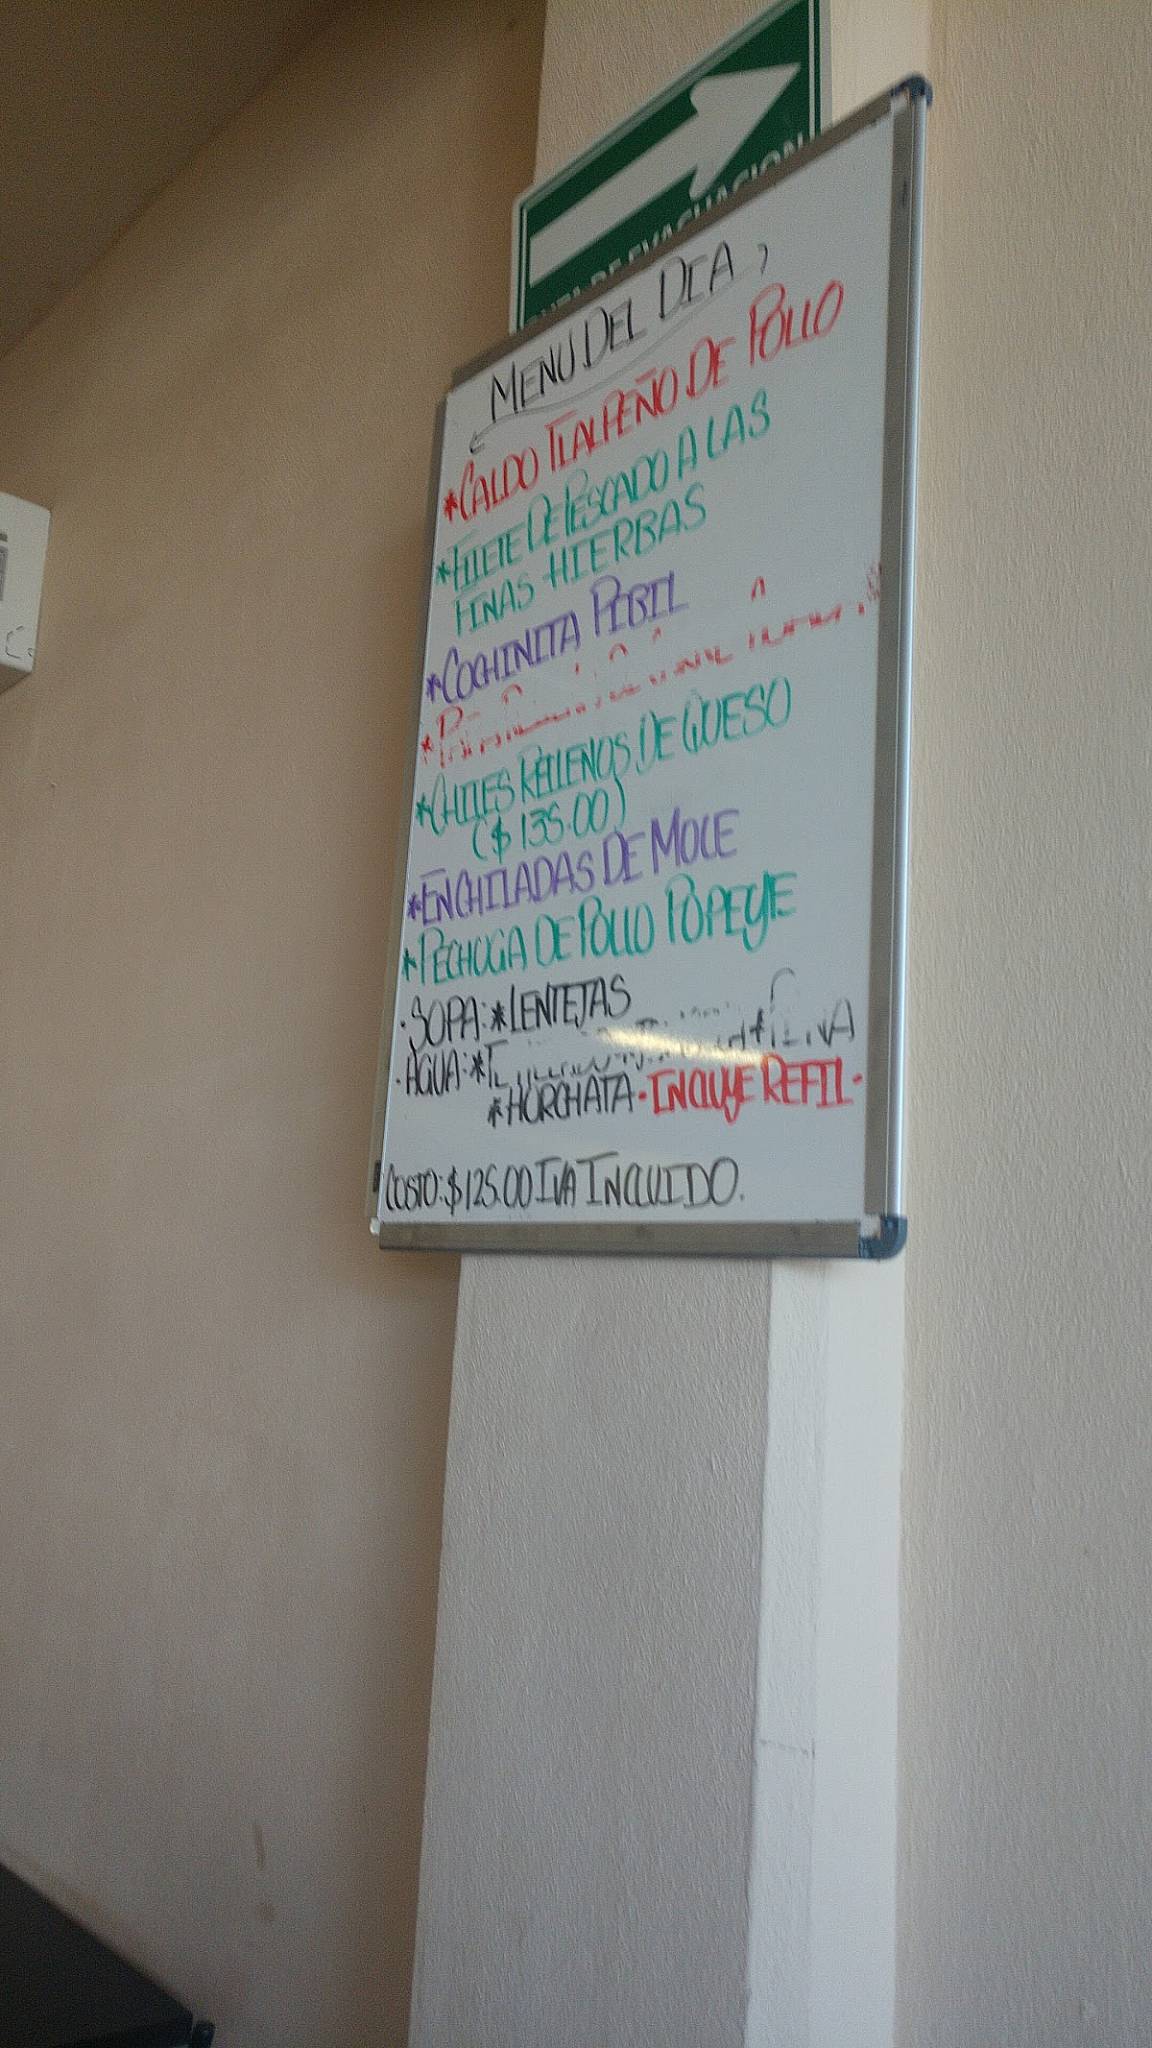 EVACUACION
MENU DEL DIA
*CALDO TLALPEÑO DE POLLO
*FILETE DE PESCADO A LAS
FINAS HIERBAS
*COCHINITA PIBIL
*CHILES RELLENOS DE QUESO
($135.00)
*ENCHILADAS DE MOLE
*PECHUGA DE POLLO POPEYE
·SOPA:*LENTEJAS
·AGUA:*
*HORCHATA·INCLUYE REFIL·
COSTO:$125.00 IVA INCLUIDO.